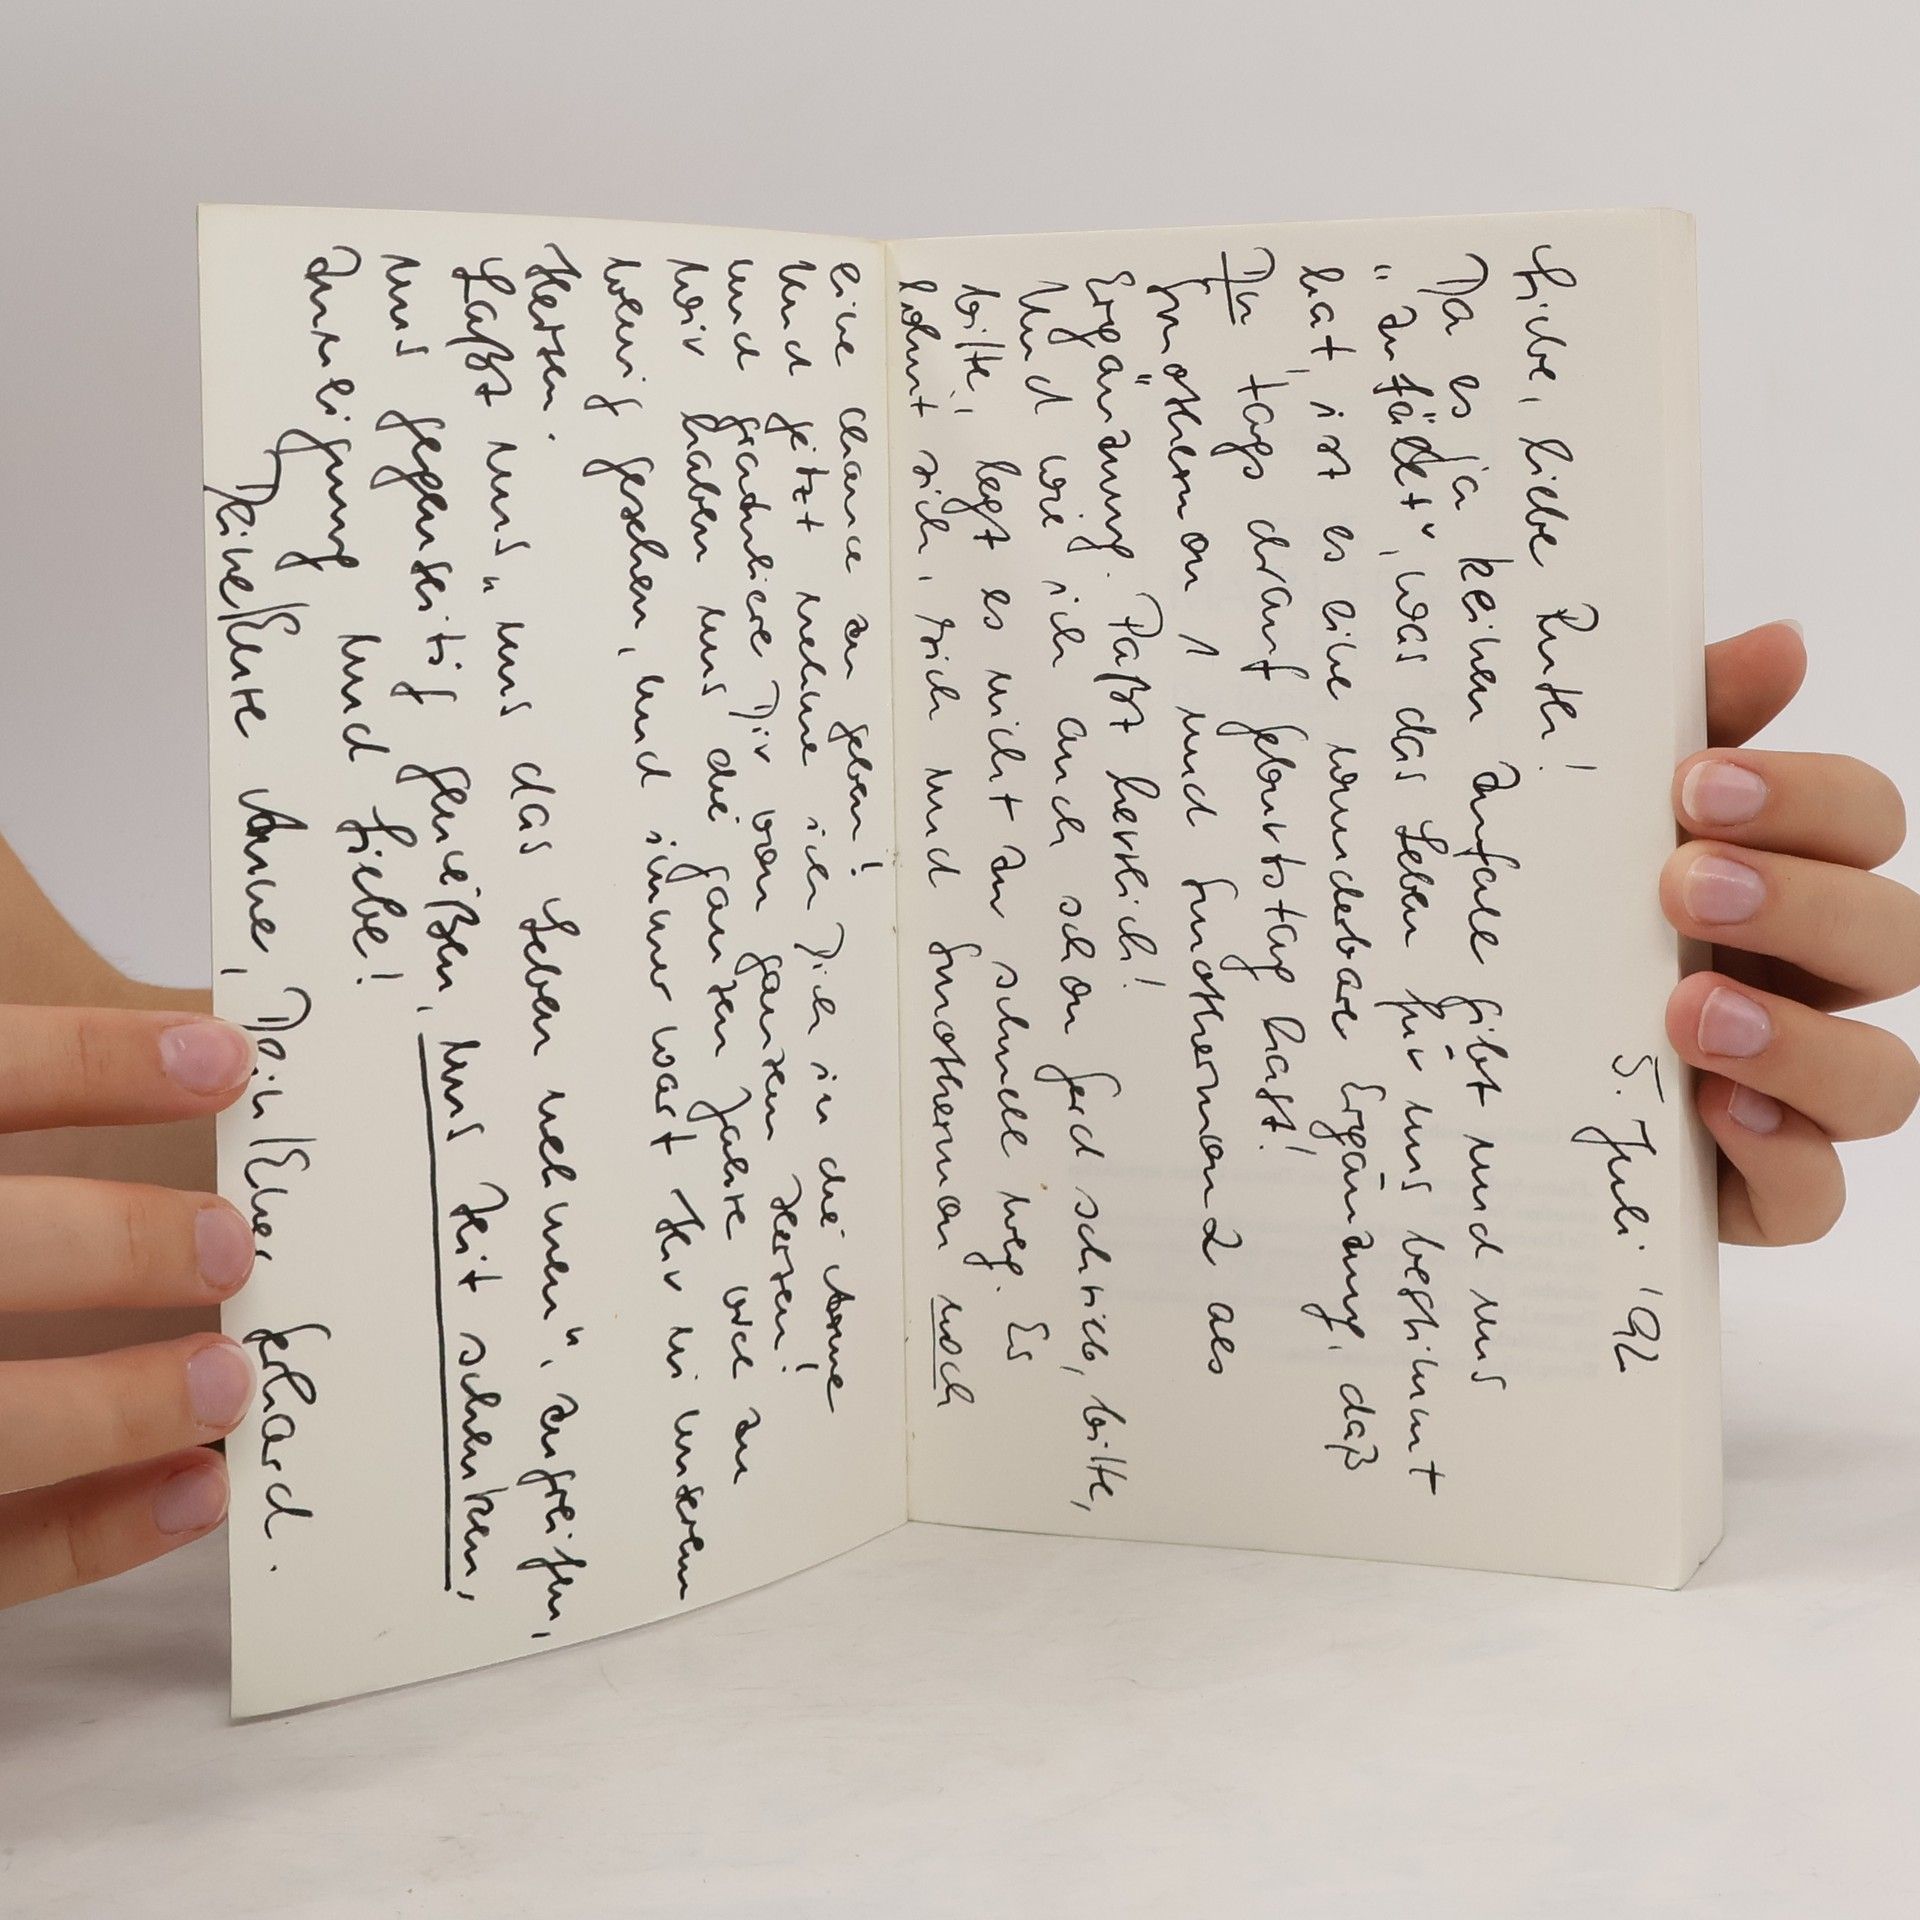 5. Juli '92
Liebe, liebe Ruth!
Da es ja keinen Zufall gibt und uns
"zufällt", was das Leben für uns bestimmt
hat, ist es eine wunderbare Ergänzung, daß
Du tags drauf Geburtstag hast!
Smotherman 1 und Smotherman 2 als
Ergänzung. Paßt herrlich!
Und wie ich auch schon Gerd schrieb, bitte,
bitte, legt es nicht zu schnell weg. Es
lohnt sich, sich und Smotherman noch
eine Chance zu geben!
Und jetzt nehme ich Dich in die Arme
und gratuliere Dir von ganzem Herzen!
Wir haben uns die ganzen Jahre viel zu
wenig gesehen, und immer wart Ihr in unseren
Herzen.
Laßt uns "uns das Leben nehmen", zugreifen,
uns gegenseitig genießen, uns Zeit schenken,
Zuneigung und Liebe!
Deine/Eure Anne, Dein/Euer Gerhard.